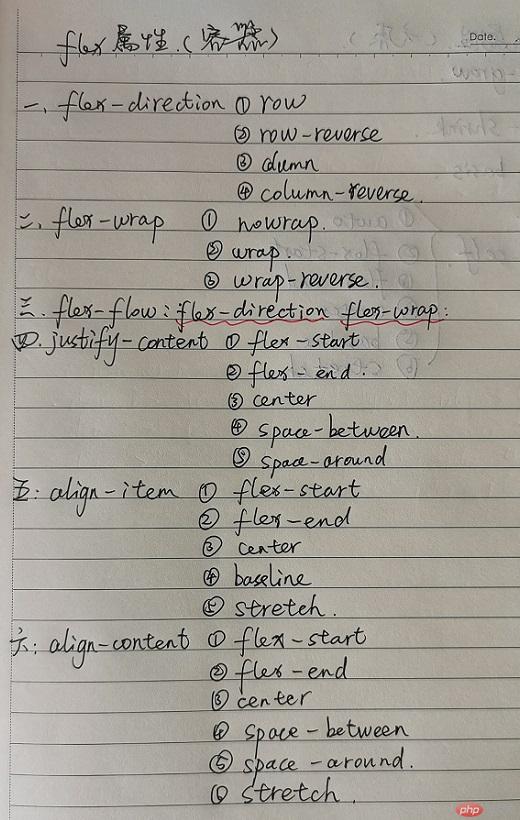 flex属性.(容器)
Date.
一、flex-direction ① row
② row-reverse
③ column
④ column-reverse.
二、flex-wrap ① nowrap.
② wrap.
③ wrap-reverse.
三.flex-flow:flex-direction flex-wrap:
四.justify-content ① flex-start
② flex-end.
③ center
④ space-between.
⑤ space-around
五:align-item ① flex-start
② flex-end
③ center
④ baseline
⑤ stretch.
六:align-content ① flex-start
② flex-end
③ center
④ space-between
⑤ space-around.
⑥ stretch.
php